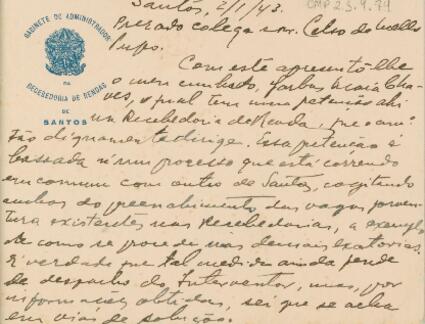 Santos, 2/1/43.
CMP 2.5.9.79
GABINETE DE ADMINISTRADOR
DA
RECEBEDORIA DE RENDAS
DE
SANTOS
Prezado collega snr. Celso de Mello
Pupo.
Com este apresento-lhe
o meu cunhado, Maia Cha-
ves, o qual tem uma petenção ahi
na Recebedoria de Renda, que o ami-
go dignamente dirige. Essa petenção é
bassada n'um processo que está correndo
em commum com outro de Santos, cogitando
ambos do preenchimento das vagas porven-
tura existentes nas Recebedorias, a exemplo
de como se procede nas demais exatorias.
É verdade que tal medida ainda pende
de despacho do Interventor, mas, por
informações obtidas, sei que se acha
em vias de solução.